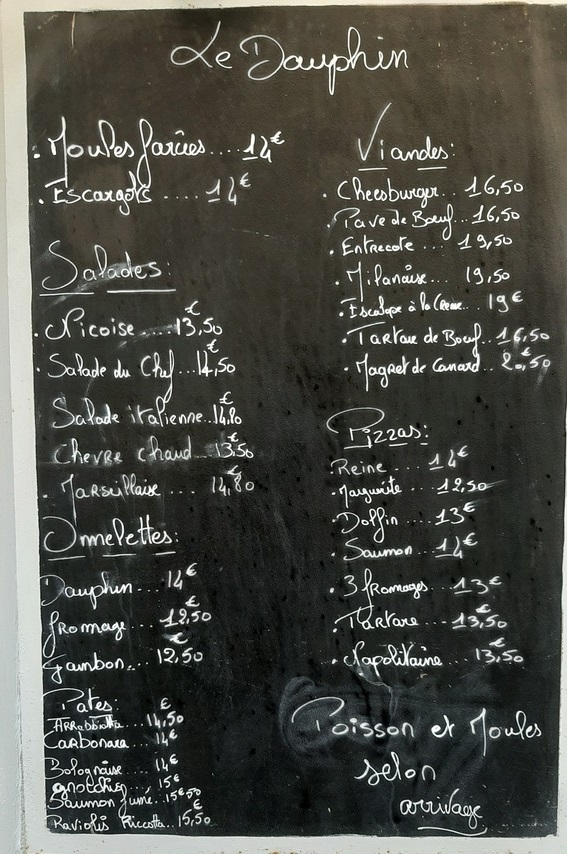 Le Dauphin
. Moules farcies.... 14€
. Escargots ..... 14€
Salades:
. Nicoise..... 13,50€
. Salade du Chef... 14,50€
Salade italienne.. 14,80€
Chevre chaud... 13,50€
. Marseillaise .... 14,80€
Ommelettes:
Dauphin... 14€
fromage ... 12,50€
Jambon.... 12,50€
Pates:
ARRabbiatta... 14,50€
CaRbonara ... 14€
Bolognaise .... 14€
gnocchie 15€
Saumon fumé.. 15€50
Raviolis Riccotta.. 15,50€
Viandes:
. Cheesburger... 16,50
. Pave de Bœuf... 16,50
. Entrecote .... 19,50
. Milanaise.... 19,50
. Escalope à la Creme... 19€
. Tartare de Boeuf... 16,50
. Magret de Canard... 20,50
Pizzas:
Reine .... 14€
. Marguerite .... 12,50
. Dolfin .... 13€
. Saumon ... 14€
. 3 fromages... 13€
. Tartare .... 13,50€
. Napolitaine ... 13,50€
Poisson et Moules
selon
arrivage